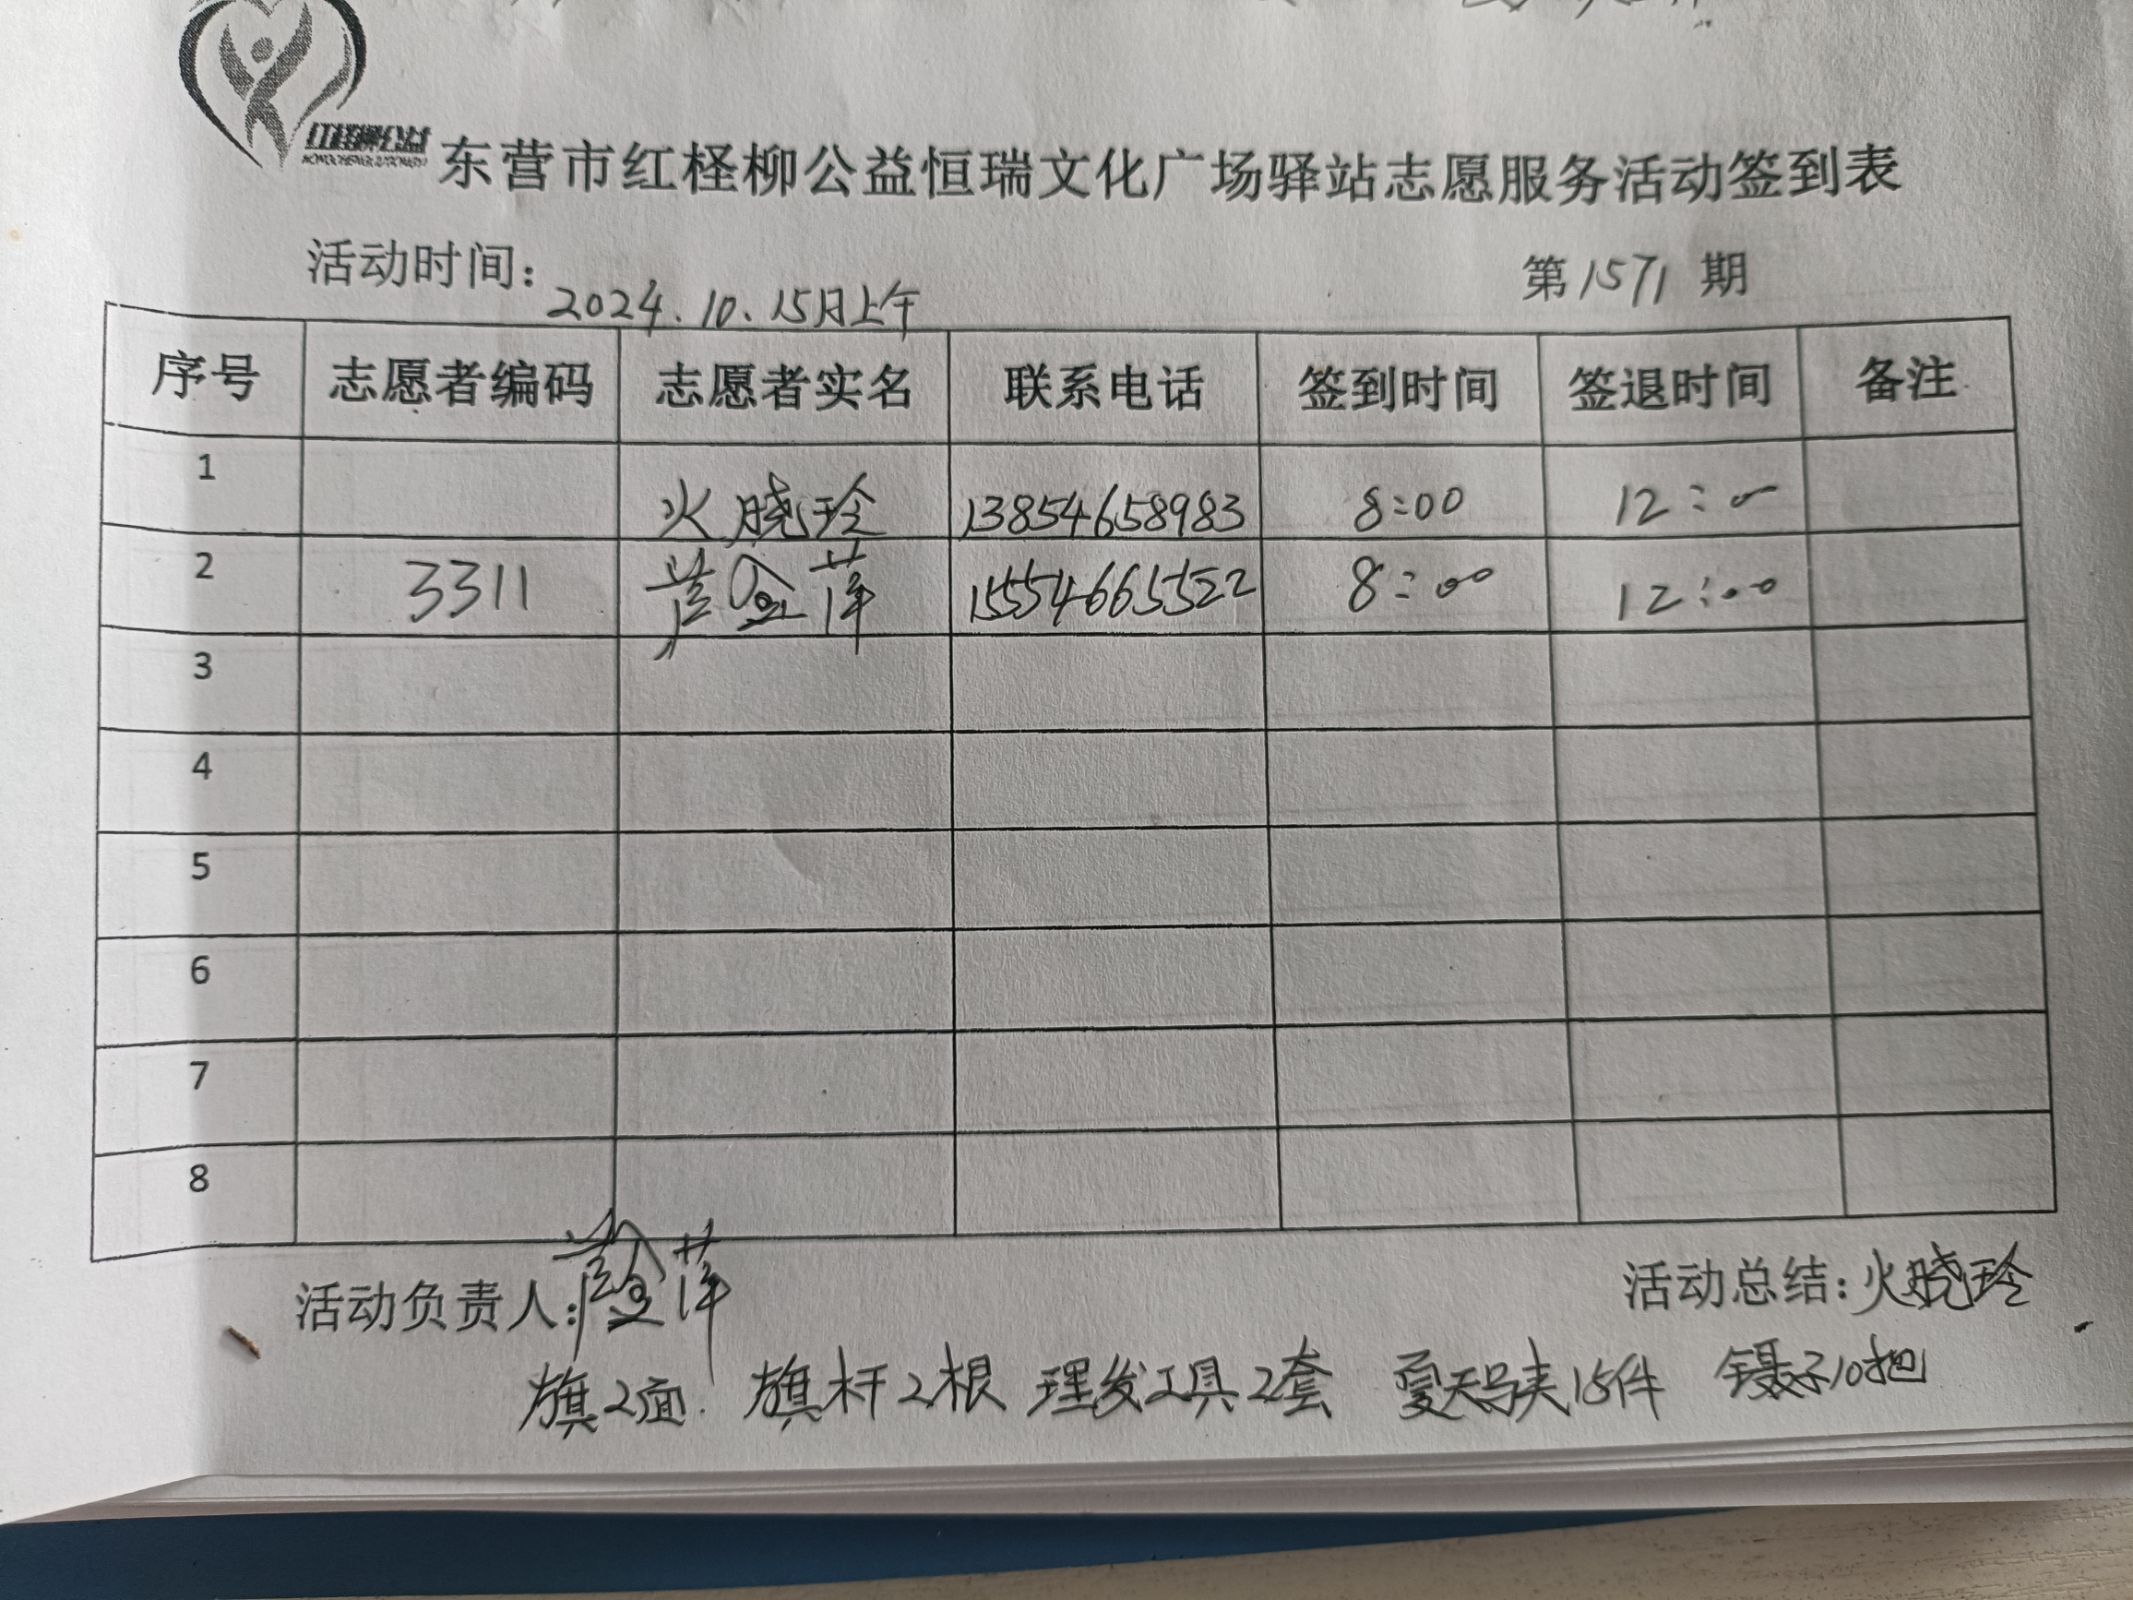 红柽柳公益
东营市红柽柳公益恒瑞文化广场驿站志愿服务活动签到表
活动时间: 2024.10.15月上午 第1571期
序号 志愿者编码 志愿者实名 联系电话 签到时间 签退时间 备注
1 火晓玲 13854658983 8:00 12:00
2 3311 黄金萍 15554665522 8:00 12:00
3
4
5
6
7
8
活动负责人:黄金萍 活动总结:火晓玲
旗2面. 旗杆2根 理发工具2套 夏天马夹15件 镊子10把